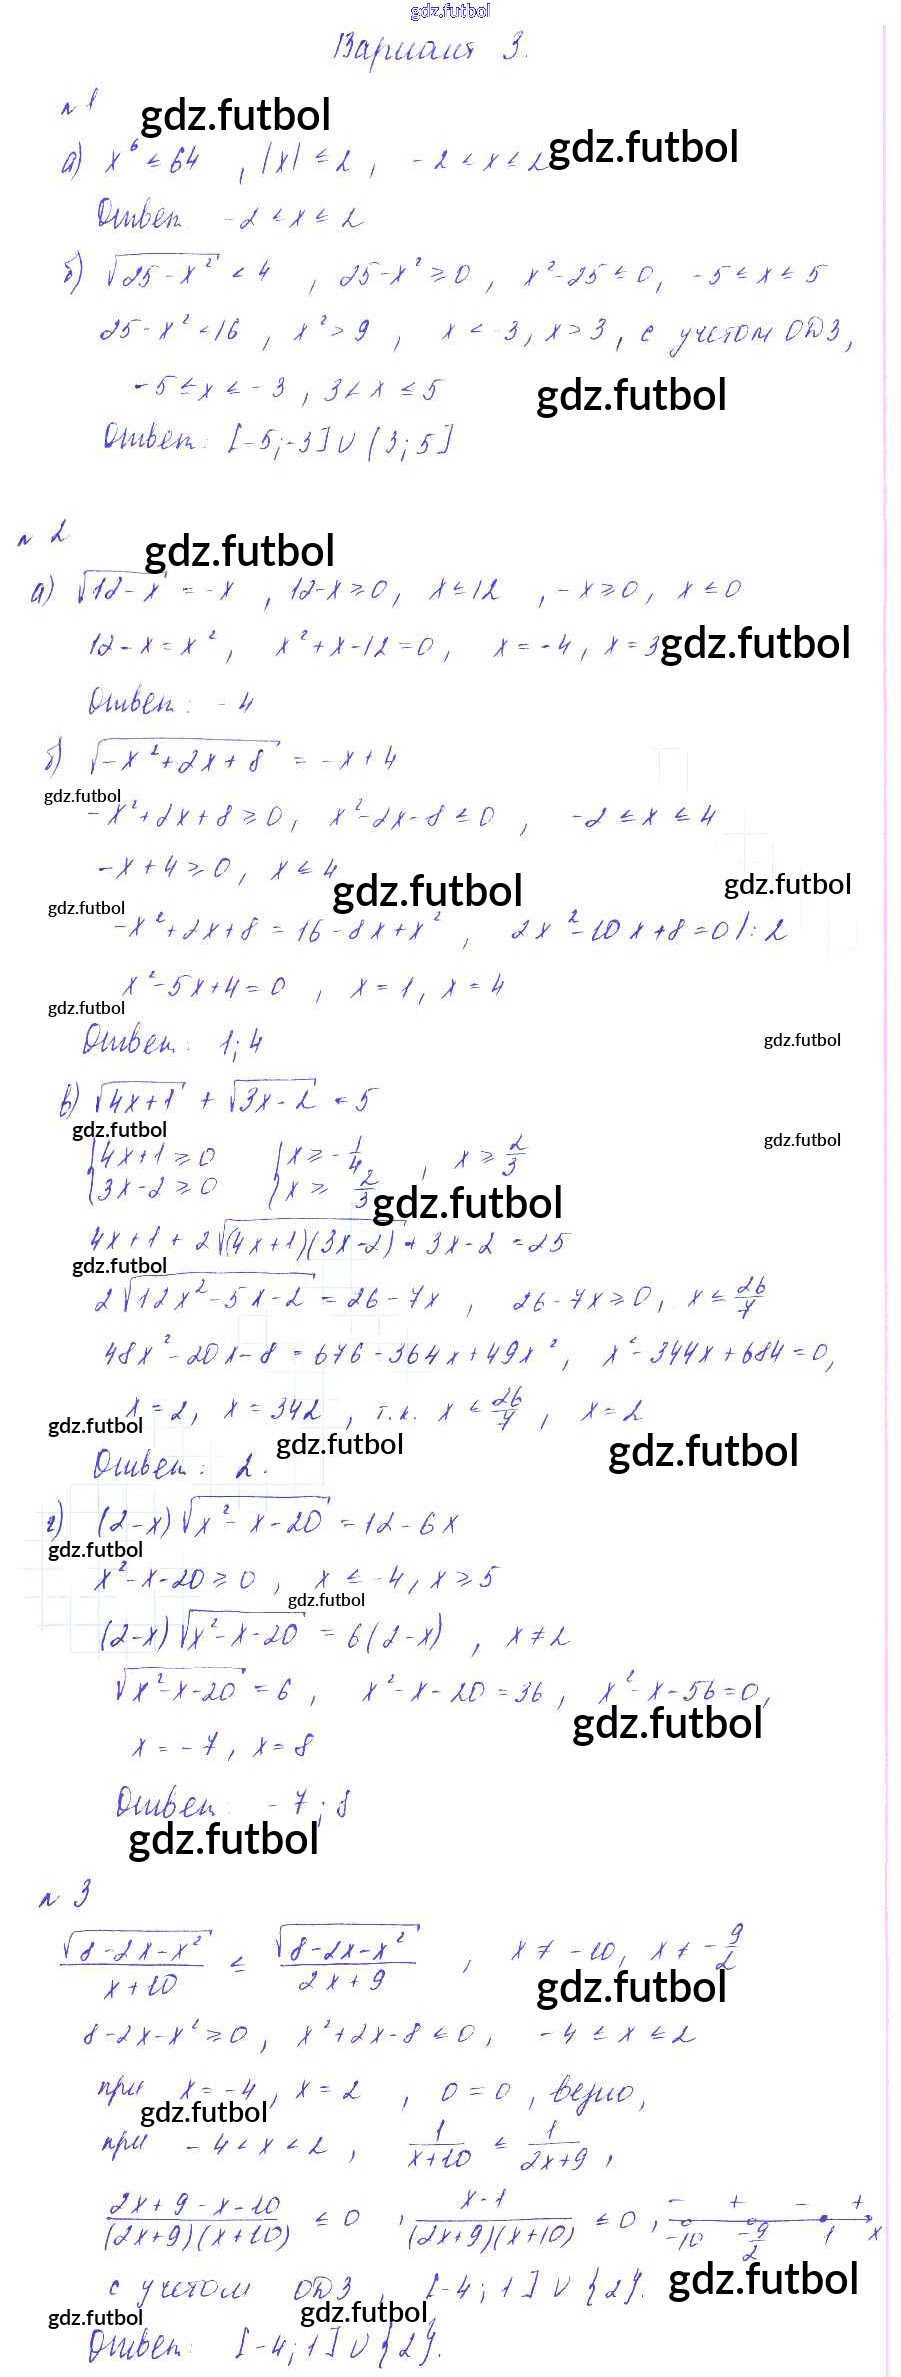 gdz.futbol
Вариант 3.
n 1
gdz.futbol
а) x⁶ ≤ 64 , |x| ≤ 2 , -2 < x ≤ 2 gdz.futbol
Ответ -2 < x ≤ 2
б) √(25-x²) < 4 , 25-x² ≥ 0 , x²-25 ≤ 0, -5 ≤ x ≤ 5
25-x² < 16 , x² > 9 , x < -3, x > 3 , с учетом ОДЗ,
-5 ≤ x ≤ -3 , 3 < x ≤ 5 gdz.futbol
Ответ: [-5;-3] ∪ (3;5]
n 2
gdz.futbol
а) √(12-x) = -x , 12-x ≥ 0, x ≤ 12 , -x ≥ 0, x ≤ 0
12-x = x² , x²+x-12=0 , x = -4, x = 3 gdz.futbol
Ответ: -4
б) √(-x²+2x+8) = -x+4
gdz.futbol
-x²+2x+8 ≥ 0, x²-2x-8 ≤ 0 , -2 ≤ x ≤ 4
-x+4 ≥ 0, x ≤ 4
gdz.futbol gdz.futbol
gdz.futbol
-x²+2x+8 = 16-8x+x² , 2x²-10x+8=0 |:2
x²-5x+4=0 , x=1, x=4
gdz.futbol
Ответ: 1;4 gdz.futbol
в) √(4x+1) + √(3x-2) = 5
gdz.futbol gdz.futbol
{4x+1 ≥ 0 {x ≥ -1/4 , x ≥ 2/3
{3x-2 ≥ 0 {x ≥ 2/3 gdz.futbol
4x+1+2√((4x+1)(3x-2)) + 3x-2 = 25
gdz.futbol
2√(12x²-5x-2) = 26-7x , 26-7x ≥ 0, x ≤ 26/7
48x²-20x-8 = 676-364x+49x², x²-344x+684=0,
x=2, x=342 , т.к. x ≤ 26/7 , x=2
gdz.futbol gdz.futbol gdz.futbol
Ответ: 2.
г) (2-x)√(x²-x-20) = 12-6x
gdz.futbol
x²-x-20 ≥ 0 , x ≤ -4, x ≥ 5
gdz.futbol
(2-x)√(x²-x-20) = 6(2-x) , x ≠ 2
√(x²-x-20) = 6 , x²-x-20=36, x²-x-56=0,
gdz.futbol
x = -7, x = 8
Ответ: -7; 8
gdz.futbol
n 3
√(8-2x-x²)/(x+10) ≤ √(8-2x-x²)/(2x+9) , x ≠ -10, x ≠ -9/2
gdz.futbol
8-2x-x² ≥ 0, x²+2x-8 ≤ 0, -4 ≤ x ≤ 2
при x=-4, x=2 , 0=0 , верно,
gdz.futbol
при -4 < x < 2 , 1/(x+10) ≤ 1/(2x+9) ,
(2x+9-x-10)/((2x+9)(x+10)) ≤ 0 , (x-1)/((2x+9)(x+10)) ≤ 0 , - + - + -10 -9/2 1 x
с учетом ОДЗ , [-4;1] ∪ {2}. gdz.futbol
gdz.futbol gdz.futbol
Ответ: [-4;1] ∪ {2}.